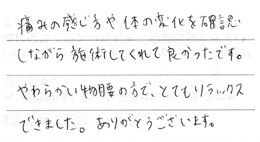 痛みの感じ方や体の変化を確認
しながら施術してくれて良かったです。
やわらかい物腰の方で、とてもリラックス
できました。ありがとうございます。